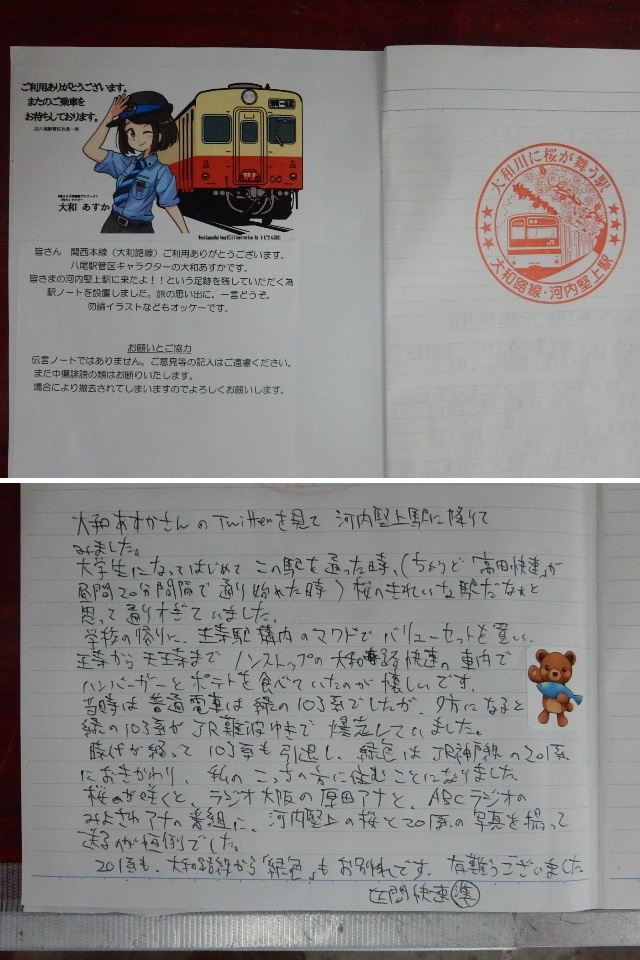 ご利用ありがとうございます。
またのご乗車を
お待ちしております。
大和 あすか
皆さん 関西本線（大和路線）ご利用ありがとうございます。
八尾駅管区キャラクターの大和あすかです。
皆さまの河内堅上駅に来たよ！！という足跡を残していただく為
駅ノートを設置しました。旅の思い出に、一言どうぞ。
勿論イラストなどもオッケーです。
お願いとご協力
伝言ノートではありません。ご意見等の記入はご遠慮ください。
また中傷誹謗の類はお断りいたします。
場合により撤去されてしまいますのでよろしくお願いします。
大和川に桜が舞う駅
大和路線・河内堅上駅
大和あすかさんのTwitterを見て 河内堅上駅に降りて
みました。
大学生になってはじめて この駅を通った時、(ちょうど「高田快速」が
昼間20分間隔で通り始めた時) 桜のきれいな駅だなぁと
思って通りすぎていました。
学校の帰りに、王寺駅構内のマクドで バリューセットを買い、
王寺から天王寺まで ノンストップの大和路快速の車内で
ハンバーガーとポテトを食べていたのが懐しいです。
当時は普通電車は緑の103系でしたが、夕方になると
緑の103系がJR難波ゆきで 爆走していました。
時代が経って 103系も引退し、緑色は JR神戸線の201系
におきかわり、私の こっちの方に住むことになりました
桜が咲くと、ラジオ大阪の原田アナと、ABCラジオの
みよさわアナの番組に、河内堅上の桜と201系の写真を撮って
送るのが恒例でした。
201系も、大和路線から「緑色」もお別れです。有難うございました
区間快速